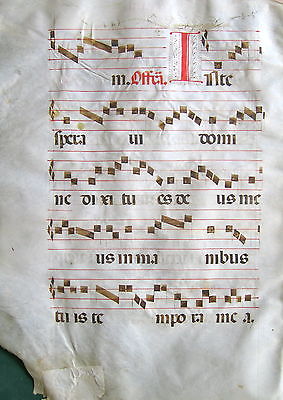 m. I Nte
spera ui domi
ne di xi tu es de us me
us in ma nibus
tu is te mpo ra me a.